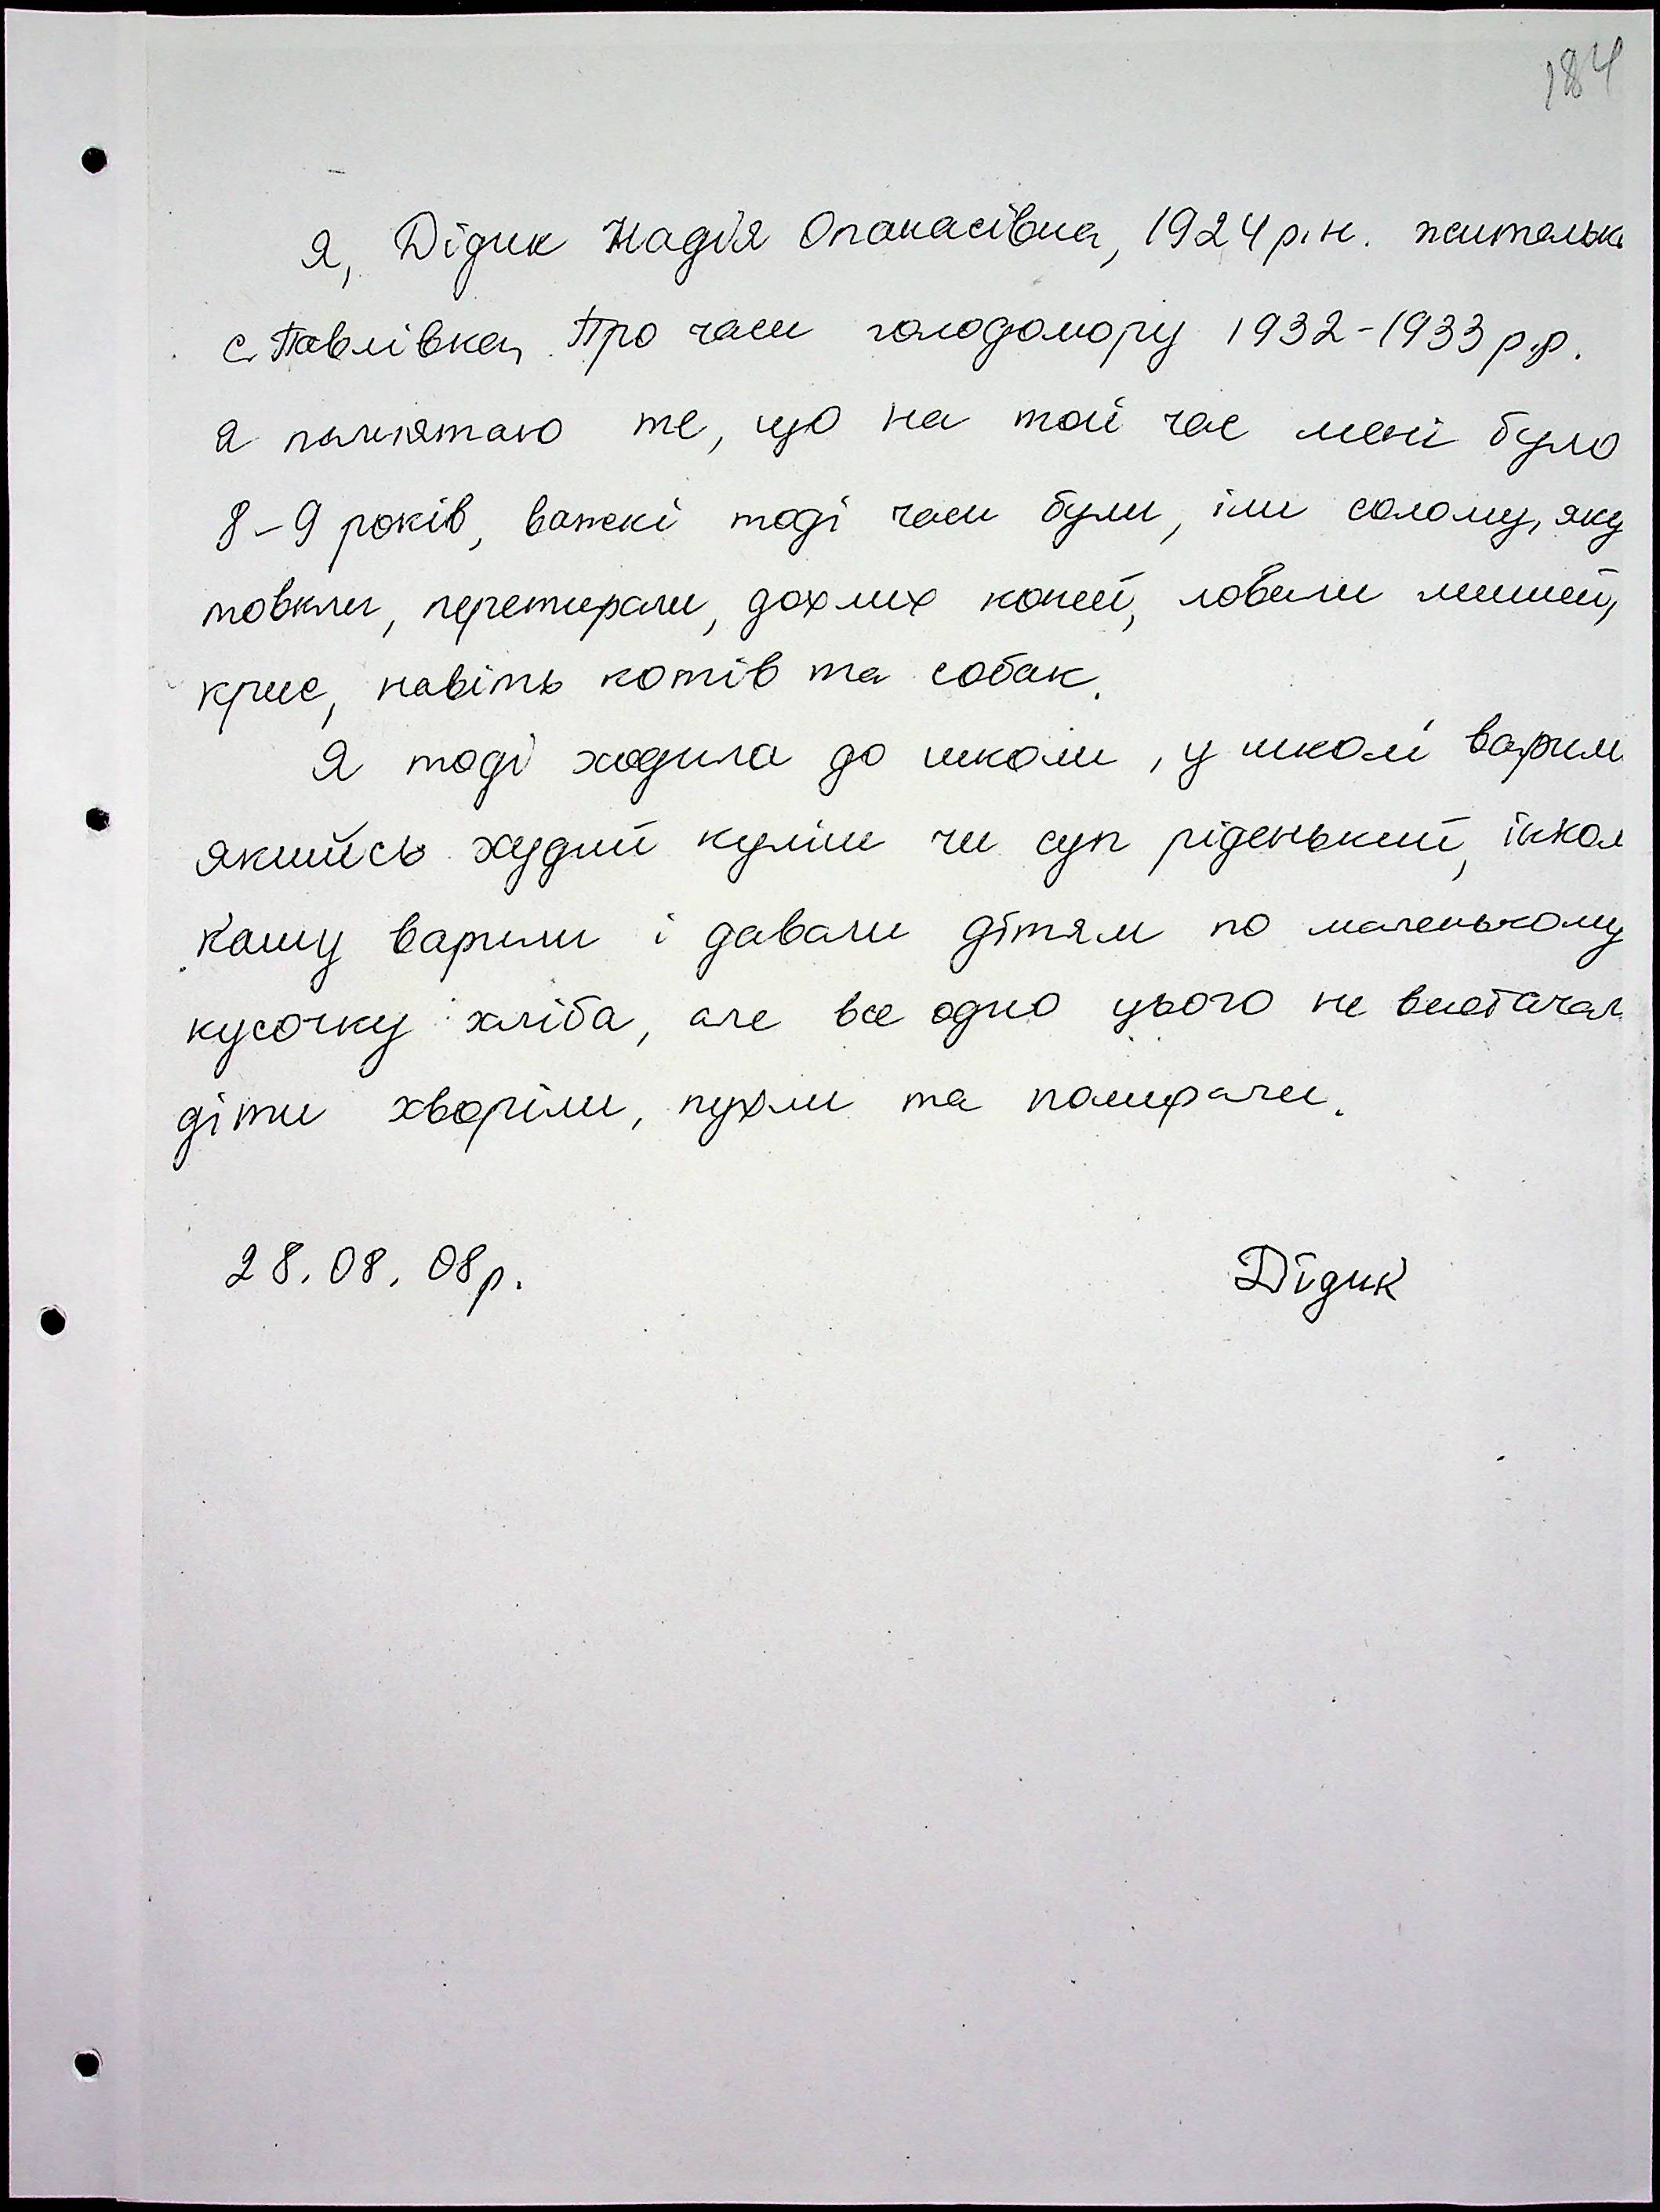 184
Я, Дідик Надія Опанасівна, 1924 р.н. жителька
с. Павлівка, Про часи голодомору 1932-1933 р.р.
я памятаю те, що на той час мені було
8-9 років, важкі тоді часи були, їли солому, яку
товкли, перетирали, дохлих коней, ловили мишей,
крис, навіть котів та собак.
Я тоді ходила до школи, у школі варили
якийсь худий куліш чи суп ріденький, інкол
кашу варили і давали дітям по маленькому
кусочку хліба, але все одно цього не вистачал
діти хворіли, пухли та помирали.
28.08.08р. Дідик